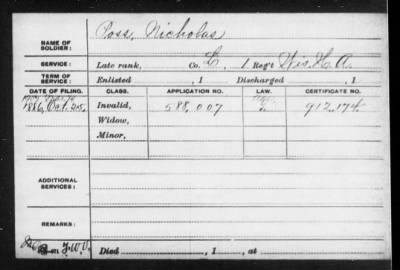 Poss, Nicholas
NAME OF SOLDIER:
SERVICE: Late rank, Co. L, 1 Reg't Wis. H. A.
TERM OF SERVICE: Enlisted , 1 Discharged , 1
DATE OF FILING. CLASS. APPLICATION NO. LAW. CERTIFICATE NO.
1886, Oct. 25, Invalid, 588.007 912.174
Widow,
Minor,
ADDITIONAL SERVICES:
REMARKS:
J.W.V. Died , 1 , at